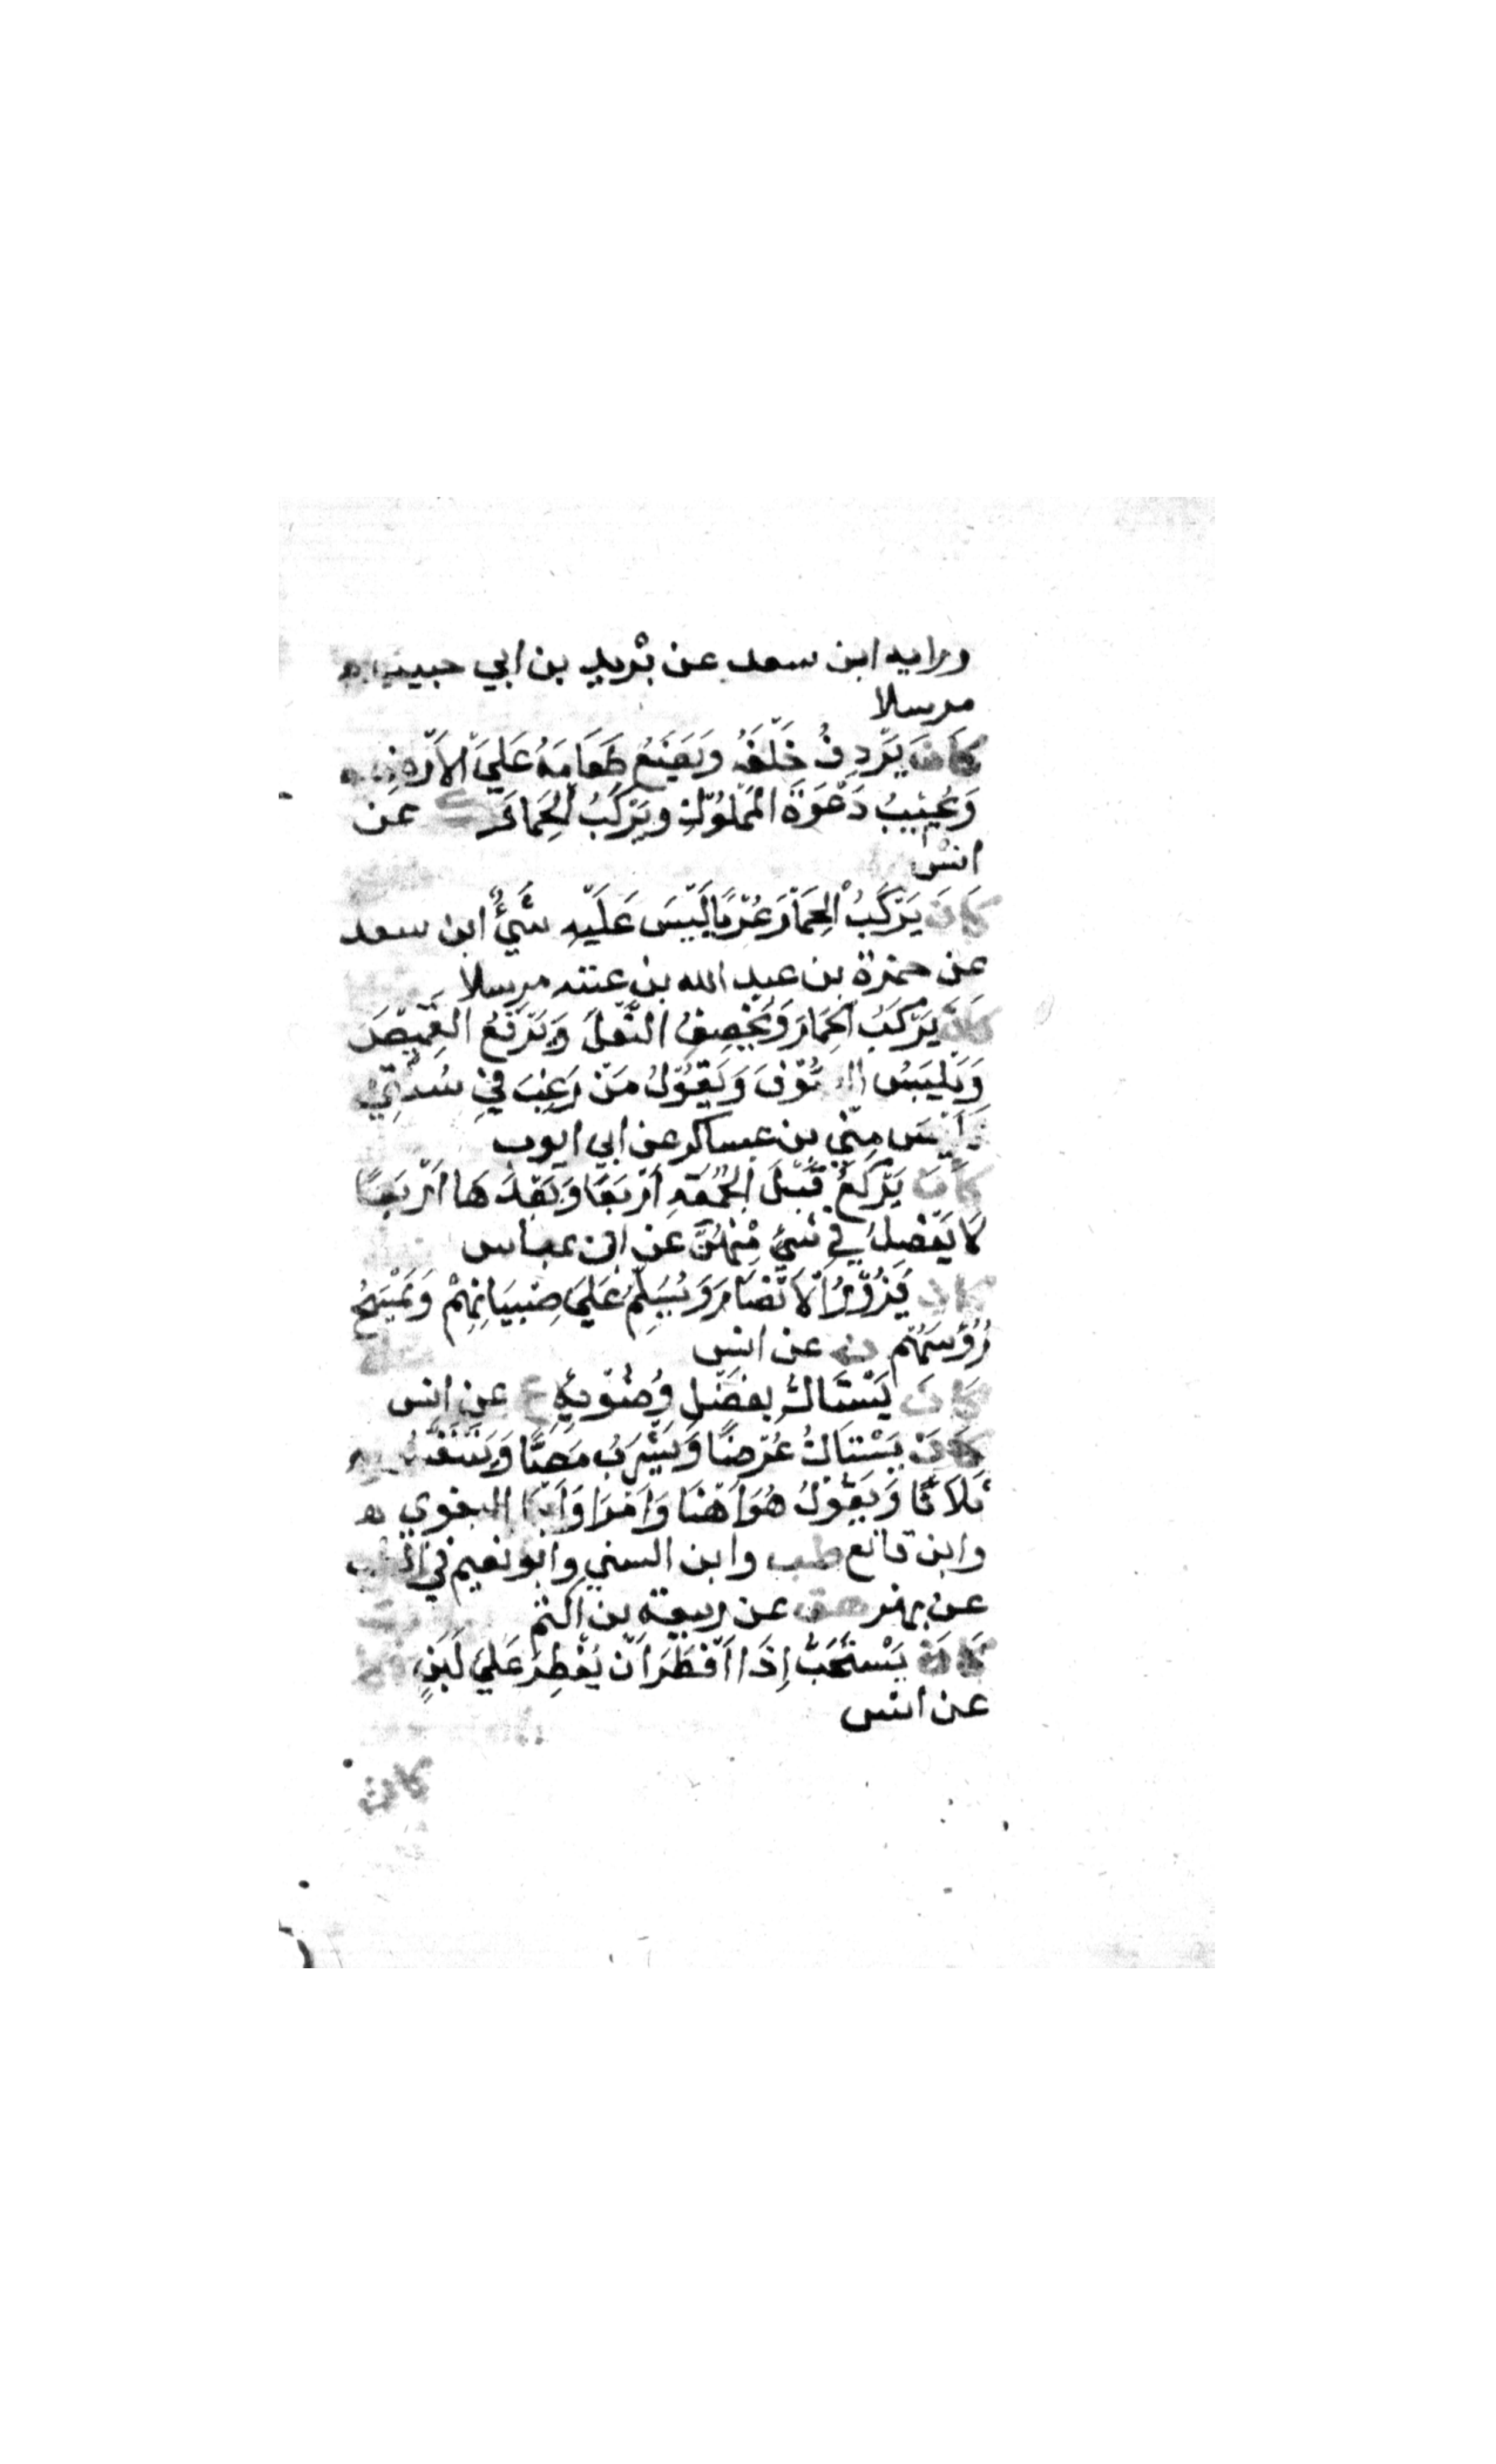 ورايه ابن سعد عن يزيد بن ابي حبيب
مرسلا
كَانَ يَرْدِفُ خَلْفَهُ وَيَضَعُ طَعَامَهُ عَلَي الاَرْضِ
وَيُجِيبُ دَعْوَةَ الْمَمْلُوْكِ وَيَرْكَبُ الْحِمَارَ ك عن
انس
كَانَ يَرْكَبُ الْحِمَارَ عُرْيًا لَيْسَ عَلَيْهِ شَيْءٌ ابن سعد
عن حمزة بن عبد الله بن عتبه مرسلا
كَانَ يَرْكَبُ الْحِمَارَ وَيَخْصِفُ النَّعْلَ وَيَرْقَعُ القَمِيْصَ
وَيَلْبَسُ الصُّوْفَ وَيَقُوْلُ مَنْ رَغِبَ فِي سُنَّتِي
فَلَيْسَ مِنِّي بن عساكر عن ابي ايوب
كَانَ يَرْكَعُ قَبْلَ الْجُمُعَةِ اَرْبَعًا وَبَعْدَهَا اَرْبَعًا
لَا يَفْصِلُ فِي شَيْءٍ مِنْهُنَّ عن ابن عباس
كَانَ يَزُوْرُ الْاَنْصَارَ وَيُسَلِّمُ عَلَي صِبْيَانِهِمْ وَيَمْسَحُ
رُؤُسَهُمْ ن عن انس
كَانَ يَسْتَاكُ بِفَضْلِ وُضُوْئِهِ ع عن انس
كَانَ يَسْتَاكُ عُرْضًا وَيَشْرَبُ مَصًّا وَيَتَنَفَّسُ
ثَلَاثًا وَيَقُوْلُ هُوَ اَهْنَا وَاَمْرَا وَاَبْرَا البغوي
وابن قانع طب وابن السني وابو نعيم في الطب
عن بهز هق عن ربيعة بن اكثم
كَانَ يَسْتَحِبُّ اِذَا اَفْطَرَ اَنْ يُفْطِرَ عَلَي لَبَنٍ
عن انس
كان